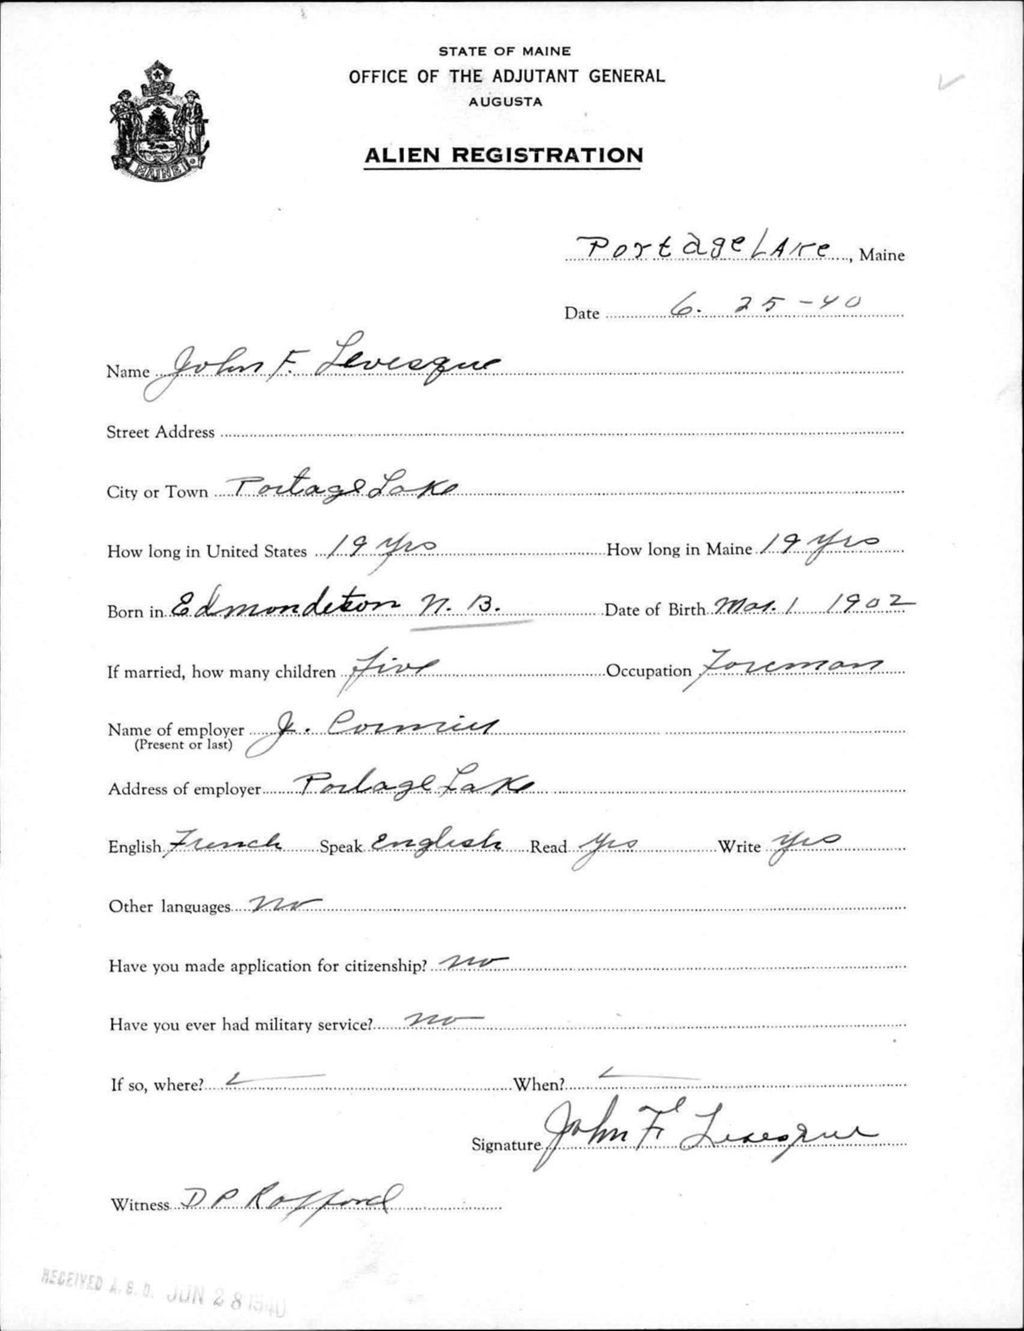 STATE OF MAINE
OFFICE OF THE ADJUTANT GENERAL
AUGUSTA
ALIEN REGISTRATION
MAINE
Portage Lake, Maine
Date 6. 25-40
Name John F. Levesque
Street Address
City or Town Portage Lake
How long in United States 19 Yrs How long in Maine 19 Yrs
Born in Edmondston N. B. Date of Birth Mar. 1 1902
If married, how many children five Occupation Foreman
Name of employer J. Cormier
(Present or last)
Address of employer Portage Lake
English French Speak English Read Yes Write Yes
Other languages No
Have you made application for citizenship? no
Have you ever had military service? no
If so, where? When?
Signature John F Levesque
Witness D P
RECEIVED A. G. O. JUN 28 1940